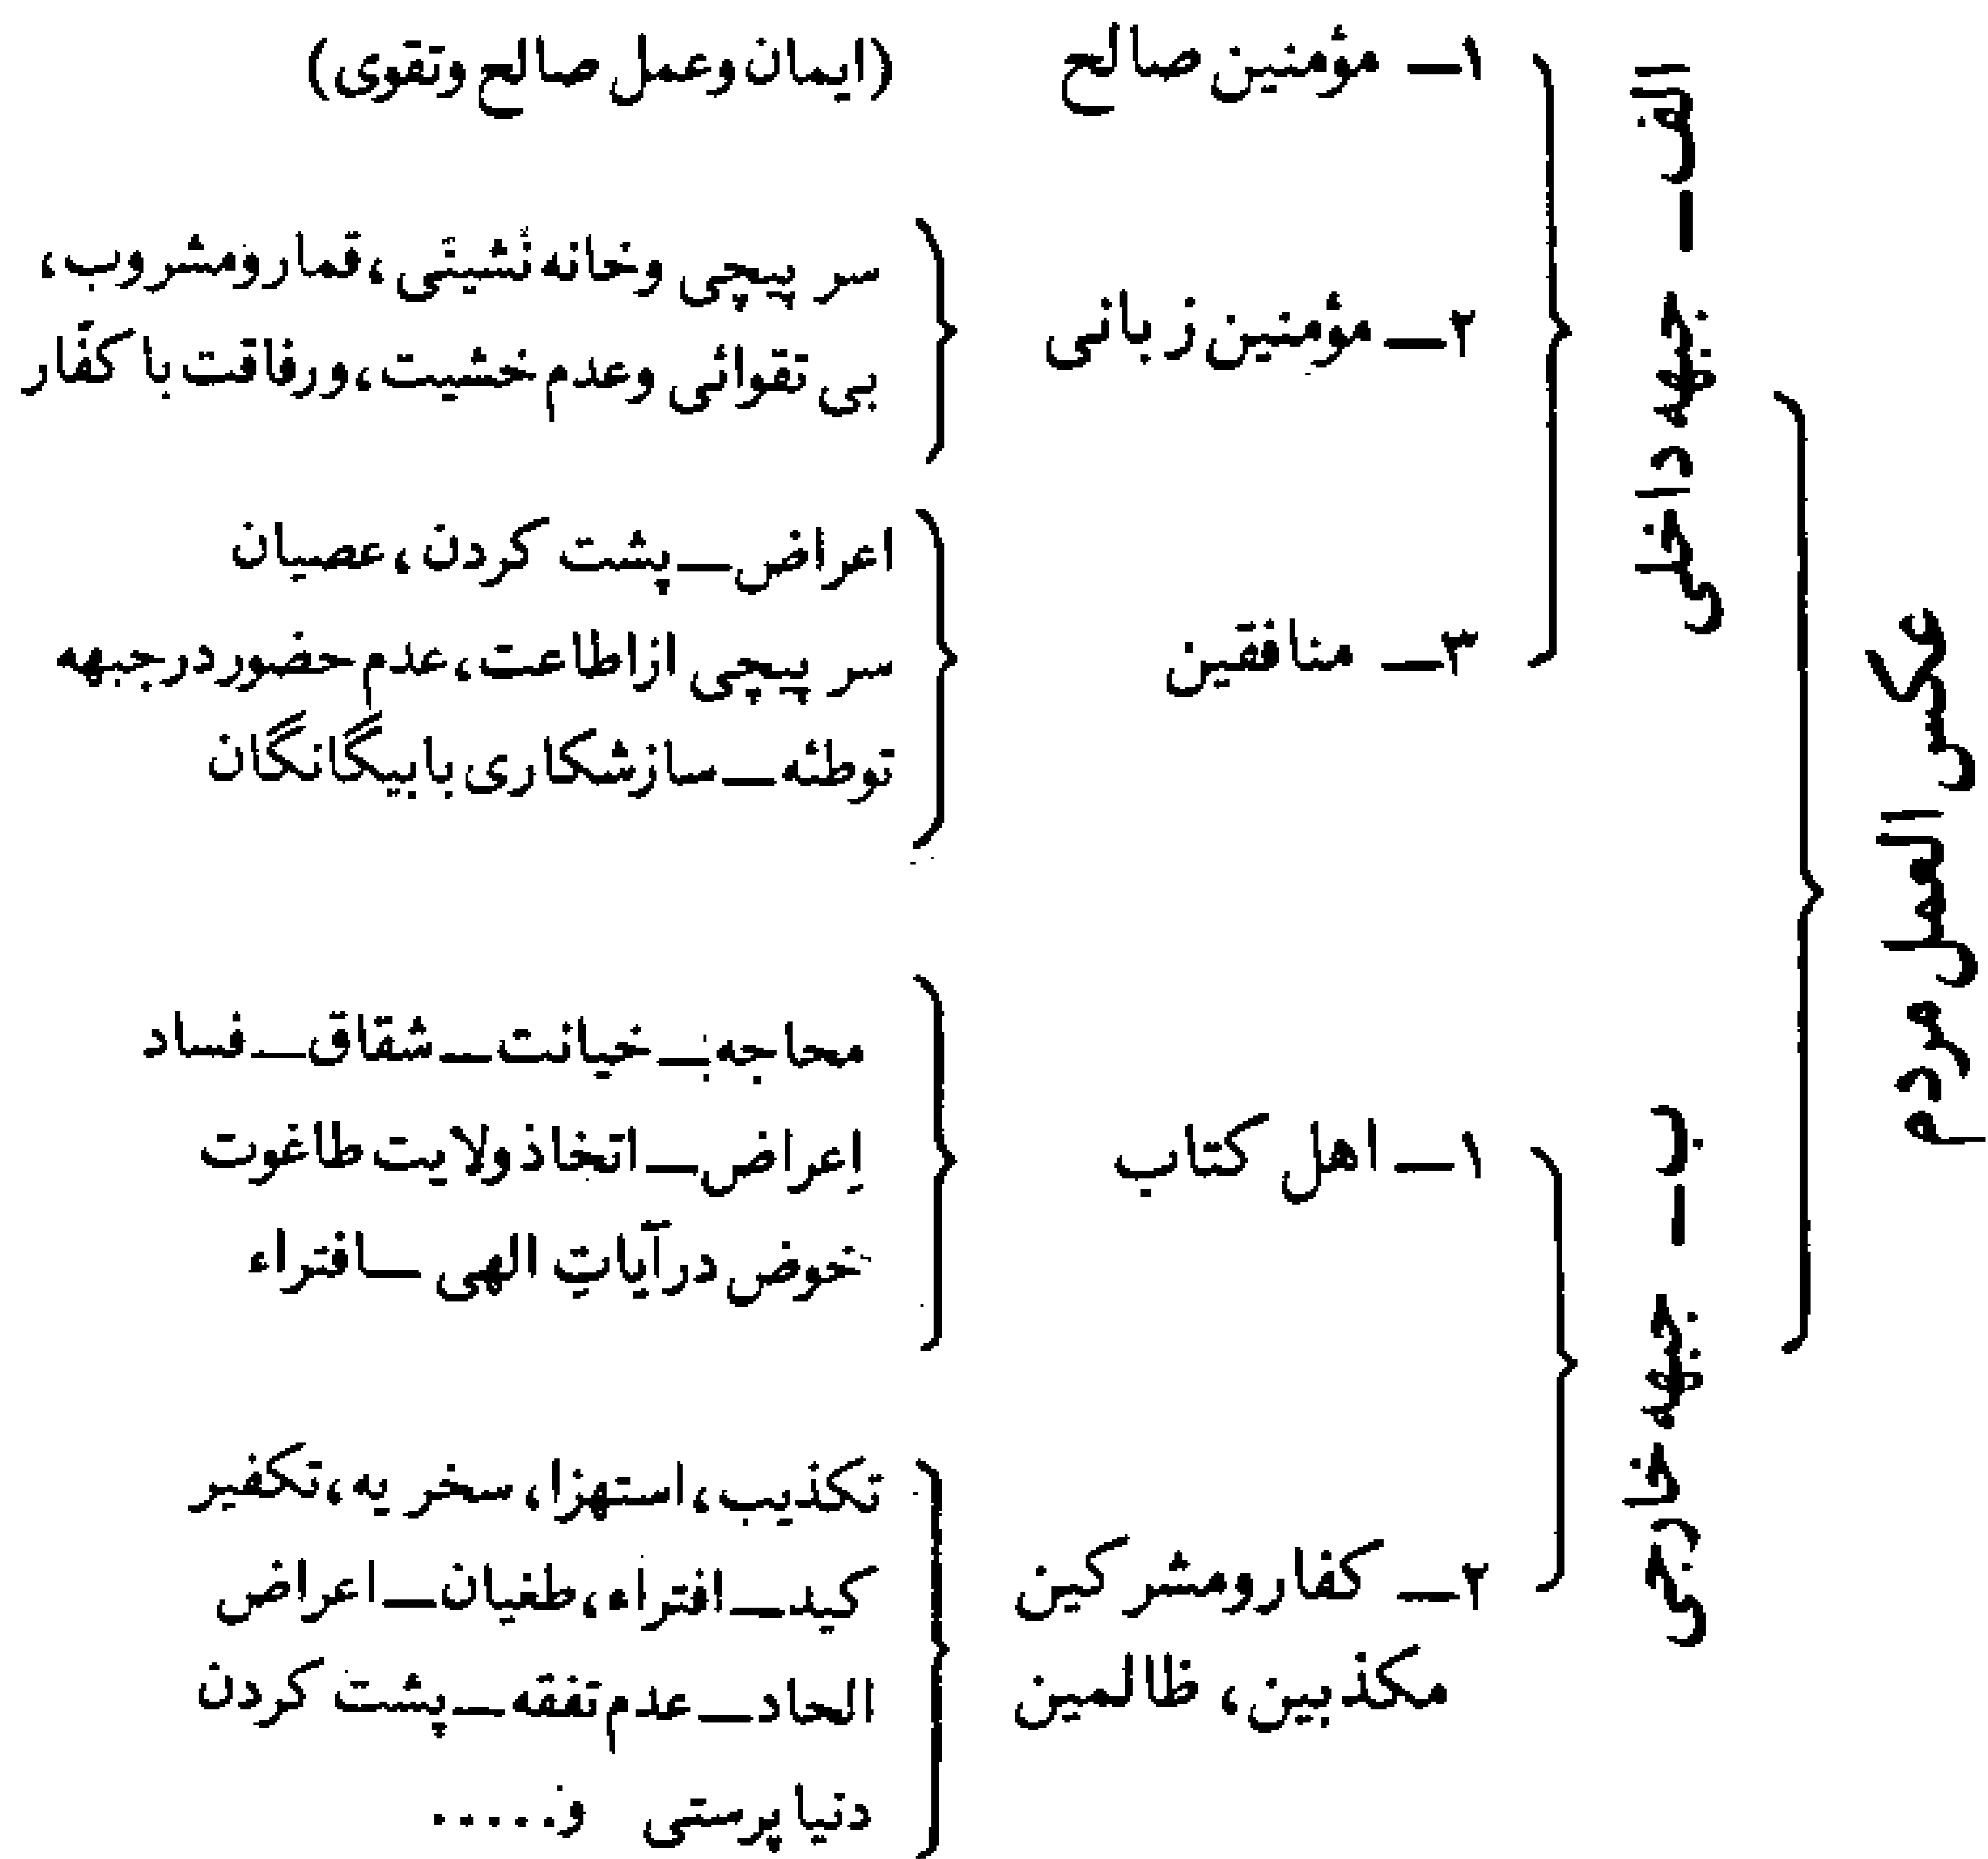 عکس العمل مردم
الف ـ جبهه داخلی
۱ـ مؤمنین صالح
(ایمان وعمل صالح وتقوی)
۲ـ مؤمنین زبانی
سر پیچی وخانه نشینی، قمارومشروب،
بی تقوائی وعدم خشیت، ورفاقت با کفّار
۳ـ منافقین
اعراض ـ پشت کردن، عصیان
سر پیچی ازاطاعت، عدم حضوردرجبهه
توطئه ـ سازشکاری بابیگانگان
ب ـ جبهه خارجی
۱ـ اهل کتاب
محاجه ـ خیانت ـ شقاق ـ فساد
اِعراض ـ اتخاذ ولایت طاغوت
خوض درآیاتِ الهی ـ افتراء
۲ـ کفارومشرکین
مکذبین، ظالمین
تکذیب، استهزا، سخر یه، تکفیر
کید ـ افتراء، طغیان ـ اعراض
الحاد ـ عدم تفقه ـ پشت کردن
دنیا پرستی و.....